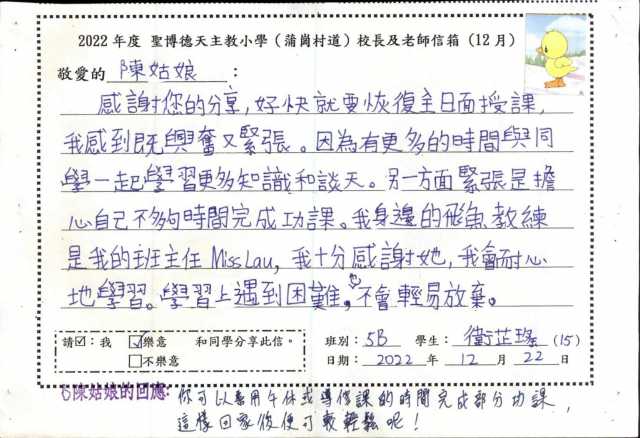 2022 年度 聖博德天主教小學（蒲崗村道）校長及老師信箱（12月）
敬愛的 陳姑娘 ：
感謝您的分享，好快就要恢復全日面授課，
我感到既興奮又緊張。因為有更多的時間與同
學一起學習更多知識和談天。另一方面緊張是擔
心自己不夠時間完成功課。我身邊的飛魚教練
是我的班主任 Miss Lau，我十分感謝她，我會耐心
地學習。學習上遇到困難，不會輕易放棄。
請☑：我 ☑樂意 和同學分享此信。
□不樂意
班別： 5B 學生： 衛芷瑤 (15)
日期： 2022 年 12 月 22 日
陳姑娘的回應：你可以善用午休或導修課的時間完成部分功課，
這樣回家後便可較輕鬆呢！